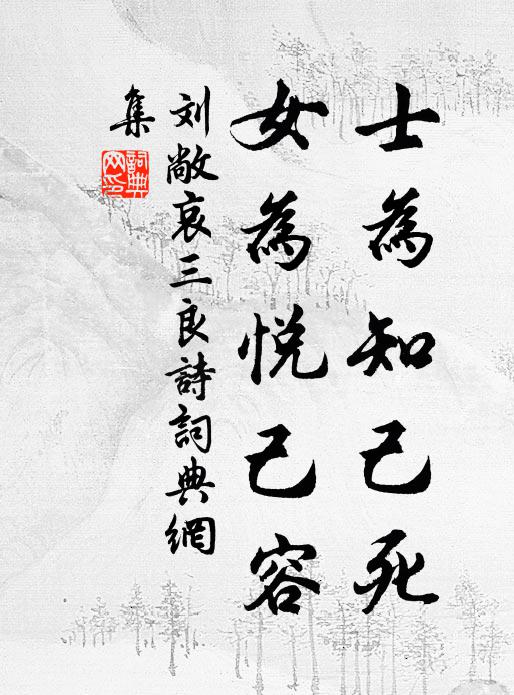 士為知己死
女為悦己容
刘敞哀三良詩詞典網
集
詞典網印